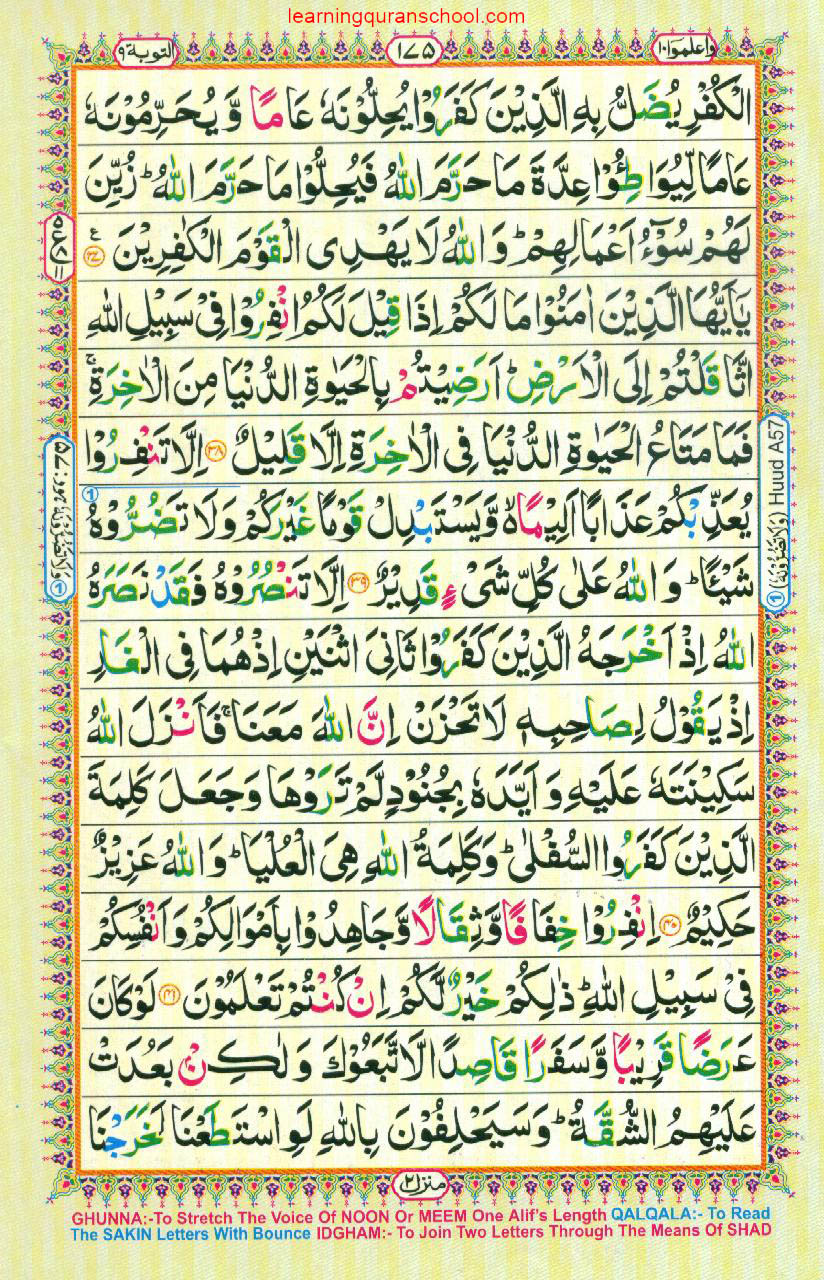 learningquranschool.com
واعلموا ١٠
١٧٥
التوبة ٩
الْكُفْرِ يُضَلُّ بِهِ الَّذِيْنَ كَفَرُوْا يُحِلُّوْنَهٗ عَامًا وَّ يُحَرِّمُوْنَهٗ
عَامًا لِّيُوَاطِـُٔوْا عِدَّةَ مَا حَرَّمَ اللّٰهُ فَيُحِلُّوْا مَا حَرَّمَ اللّٰهُ ؕ زُيِّنَ
لَهُمْ سُوْٓءُ اَعْمَالِهِمْ ؕ وَ اللّٰهُ لَا يَهْدِى الْقَوْمَ الْكٰفِرِيْنَ ﴿٣٧﴾ ع
يٰۤاَيُّهَا الَّذِيْنَ اٰمَنُوْا مَا لَكُمْ اِذَا قِيْلَ لَكُمُ انْفِرُوْا فِىْ سَبِيْلِ اللّٰهِ
اثَّاقَلْتُمْ اِلَى الْاَرْضِ ؕ اَرَضِيْتُمْ بِالْحَيٰوةِ الدُّنْيَا مِنَ الْاٰخِرَةِ ۚ
فَمَا مَتَاعُ الْحَيٰوةِ الدُّنْيَا فِى الْاٰخِرَةِ اِلَّا قَلِيْلٌ ﴿٣٨﴾ اِلَّا تَنْفِرُوْا
يُعَذِّبْكُمْ عَذَابًا اَلِيْمًا ۙ وَّ يَسْتَبْدِلْ قَوْمًا غَيْرَكُمْ وَلَا تَضُرُّوْهُ
شَيْـًٔا ؕ وَ اللّٰهُ عَلٰى كُلِّ شَىْءٍ قَدِيْرٌ ﴿٣٩﴾ اِلَّا تَنْصُرُوْهُ فَقَدْ نَصَرَهُ
اللّٰهُ اِذْ اَخْرَجَهُ الَّذِيْنَ كَفَرُوْا ثَانِىَ اثْنَيْنِ اِذْ هُمَا فِى الْغَارِ
اِذْ يَقُوْلُ لِصَاحِبِهٖ لَا تَحْزَنْ اِنَّ اللّٰهَ مَعَنَا ۚ فَاَنْزَلَ اللّٰهُ
سَكِيْنَتَهٗ عَلَيْهِ وَ اَيَّدَهٗ بِجُنُوْدٍ لَّمْ تَرَوْهَا وَجَعَلَ كَلِمَةَ
الَّذِيْنَ كَفَرُوا السُّفْلٰى ؕ وَكَلِمَةُ اللّٰهِ هِىَ الْعُلْيَا ؕ وَ اللّٰهُ عَزِيْزٌ
حَكِيْمٌ ﴿٤٠﴾ اِنْفِرُوْا خِفَافًا وَّثِقَالًا وَّجَاهِدُوْا بِاَمْوَالِكُمْ وَ اَنْفُسِكُمْ
فِىْ سَبِيْلِ اللّٰهِ ؕ ذٰلِكُمْ خَيْرٌ لَّكُمْ اِنْ كُنْتُمْ تَعْلَمُوْنَ ﴿٤١﴾ لَوْ كَانَ
عَرَضًا قَرِيْبًا وَّسَفَرًا قَاصِدًا لَّاتَّبَعُوْكَ وَلٰكِنْۢ بَعُدَتْ
عَلَيْهِمُ الشُّقَّةُ ؕ وَسَيَحْلِفُوْنَ بِاللّٰهِ لَوِ اسْتَطَعْنَا لَخَرَجْنَا
① (وَلَا تَضُرُّوْنَهٗ) Huud A57
منزل ٢
GHUNNA:-To Stretch The Voice Of NOON Or MEEM One Alif's Length QALQALA:- To Read
The SAKIN Letters With Bounce IDGHAM:- To Join Two Letters Through The Means Of SHAD